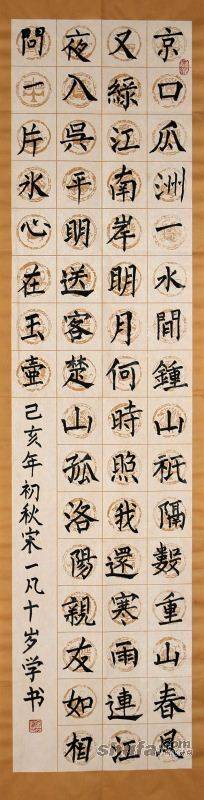 京口瓜洲一水間鍾山衹隔數重山春風
又綠江南岸明月何時照我還寒雨連江
夜入吳平明送客楚山孤洛陽親友如相
問一片氷心在玉壺
己亥年初秋宋一凡十岁学书